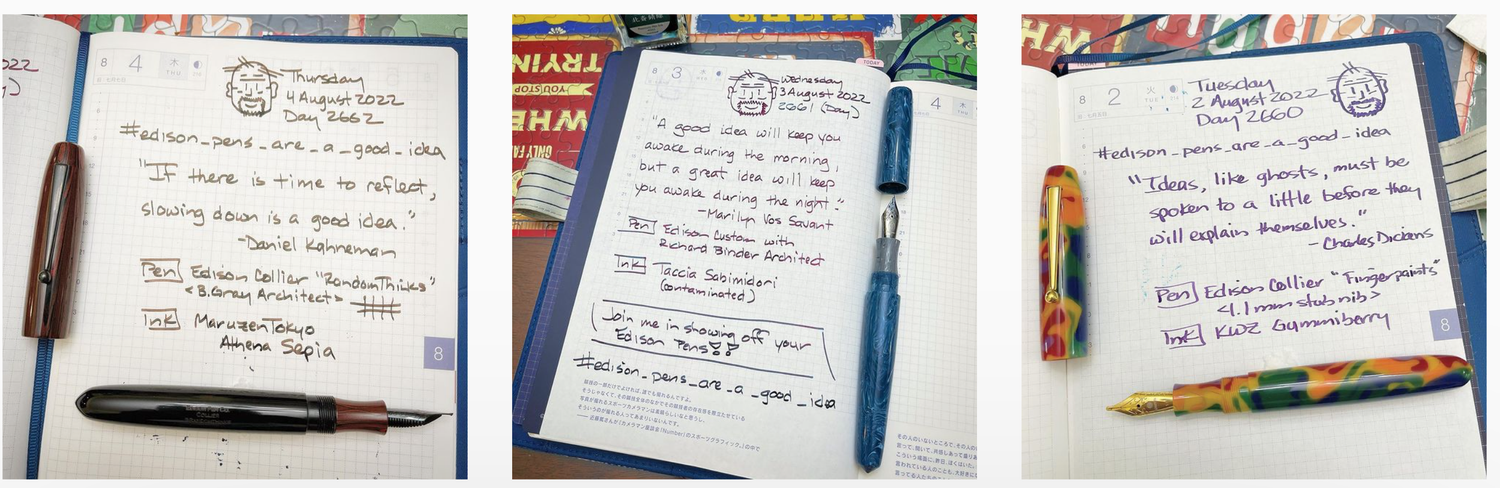 8 4 木
THU
Thursday
4 August 2022
Day 2662
#edison_pens_are_a_good_idea
"If there is time to reflect,
slowing down is a good idea."
-Daniel Kahneman
Pen Edison Collier "RandomThinks"
<B.Gray Architect>
Ink Maruzen Tokyo
Athena Sepia
8
COLLIER
TRYIN
YOU STOP
WHE
ONLY FA
8 3 木
TODAY
4
Wednesday
3 August 2022
2661 (Day)
"A good idea will keep you
awake during the morning,
but a great idea will keep
you awake during the night."
-Marilyn Vos Savant
Pen Edison Custom with
Richard Binder Architect
Ink Taccia Sabimidori
(contaminated)
Join me in showing off your
Edison Pens!!
#edison_pens_are_a_good_idea
8 2 火
TUE
Tuesday
2 August 2022
Day 2660
#edison_pens_are_a_good_idea
"Ideas, like ghosts, must be
spoken to a little before they
will explain themselves."
- Charles Dickens
Pen Edison Collier "Fingerpaints"
<1.1mm stub nib>
Ink KWZ Gummiberry
8